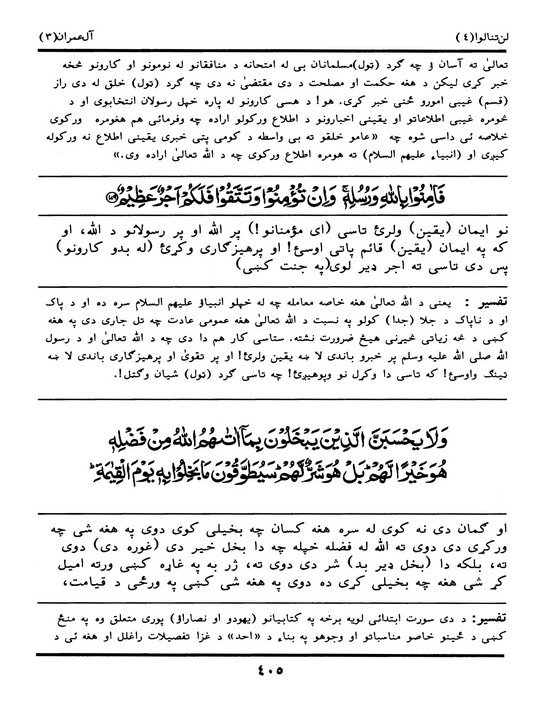 لن تنالوا (٤) آل عمران (٣)
تعالیٰ ته آسان ؤ چه گرد (ټول) مسلمانان بی له امتحانه د منافقانو له نومونو او کارونو څخه
خبر کړی لیکن د هغه حکمت او مصلحت د دی مقتضی نه دی چه گرد (ټول) خلق له دی راز
(قسم) غیبی امورو ځنی خبر کړی. هو! د هسی کارونو له پاره خپل رسولان انتخابوی او د
څومره غیبی اطلاعاتو او یقینی اخبارونو د اطلاع ورکولو اراده چه وفرمائی هم هغومره ورکوی
خلاصه ئی داسی شوه چه «عامو خلقو ته بی واسطه د کومی پتی خبری یقینی اطلاع نه ورکوله
کیږی او (انبیاء علیهم السلام) ته هومره اطلاع ورکوی چه د الله تعالیٰ اراده وی.»
فَاٰمِنُوْا بِاللهِ وَرُسُلِهٖ ۚ وَاِنْ تُؤْمِنُوْا وَتَتَّقُوْا فَلَكُمْ اَجْرٌ عَظِیْمٌ ﴿۱۷۹﴾
نو ایمان (یقین) ولرئ تاسی (ای مؤمنانو!) پر الله او پر رسولانو د الله، او
که په ایمان (یقین) قائم پاتی اوسئ! او پرهیزگاری وکړئ (له بدو کارونو)
پس دی تاسی ته اجر ډیر لوی (په جنت کښی)
تفسیر : یعنی د الله تعالیٰ هغه خاصه معامله چه له خپلو انبیاؤ علیهم السلام سره ده او د پاک
او د ناپاک د جلا (جدا) کولو په نسبت د الله تعالیٰ هغه عمومی عادت چه تل جاری دی په هغه
کښی د څه زیاتی څیړنی هیڅ ضرورت نشته. ستاسی کار هم دا دی چه د الله تعالیٰ او د رسول
الله صلی الله علیه وسلم پر خبرو باندی لا ښه یقین ولرئ! او پر تقویٰ او پرهیزگاری باندی لا ښه
تینگ واوسئ! که تاسی دا وکړل نو وپوهیږئ! چه تاسی گرد (ټول) شیان وگټل!.
وَلَا یَحْسَبَنَّ الَّذِیْنَ یَبْخَلُوْنَ بِمَاۤ اٰتٰىهُمُ اللهُ مِنْ فَضْلِهٖ
هُوَ خَیْرًا لَّهُمْ ؕ بَلْ هُوَ شَرٌّ لَّهُمْ ؕ سَیُطَوَّقُوْنَ مَا بَخِلُوْا بِهٖ یَوْمَ الْقِیٰمَةِ ؕ
او گمان دی نه کوی له سره هغه کسان چه بخیلی کوی دوی په هغه شی چه
ورکړی دی دوی ته الله له فضله خپله چه دا بخل خیر دی (غوره دی) دوی
ته، بلکه دا (بخل ډیر بد) شر دی دوی ته، ژر به په غاړه کښی ورته امیل
کړ شی هغه چه بخیلی کړی ده دوی په هغه شی کښی په ورځی د قیامت،
تفسیر: د دی سورت ابتدائی لویه برخه په کتابیانو (یهودو او نصاراؤ) پوری متعلق وه په منځ
کښی د ځینو خاصو مناسباتو او وجوهو په بناء د «احد» د غزا تفصیلات راغلل او هغه ئی د
٤٠٥